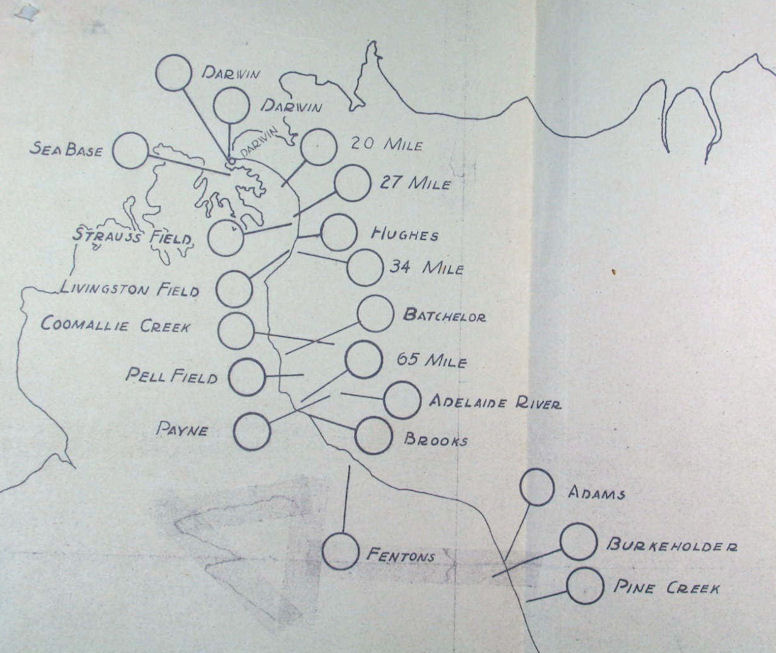 DARWIN
DARWIN
DARWIN
SEA BASE
20 MILE
27 MILE
STRAUSS FIELD
HUGHES
34 MILE
LIVINGSTON FIELD
BATCHELOR
COOMALLIE CREEK
65 MILE
PELL FIELD
ADELAIDE RIVER
PAYNE
BROOKS
ADAMS
BURKEHOLDER
FENTONS
PINE CREEK